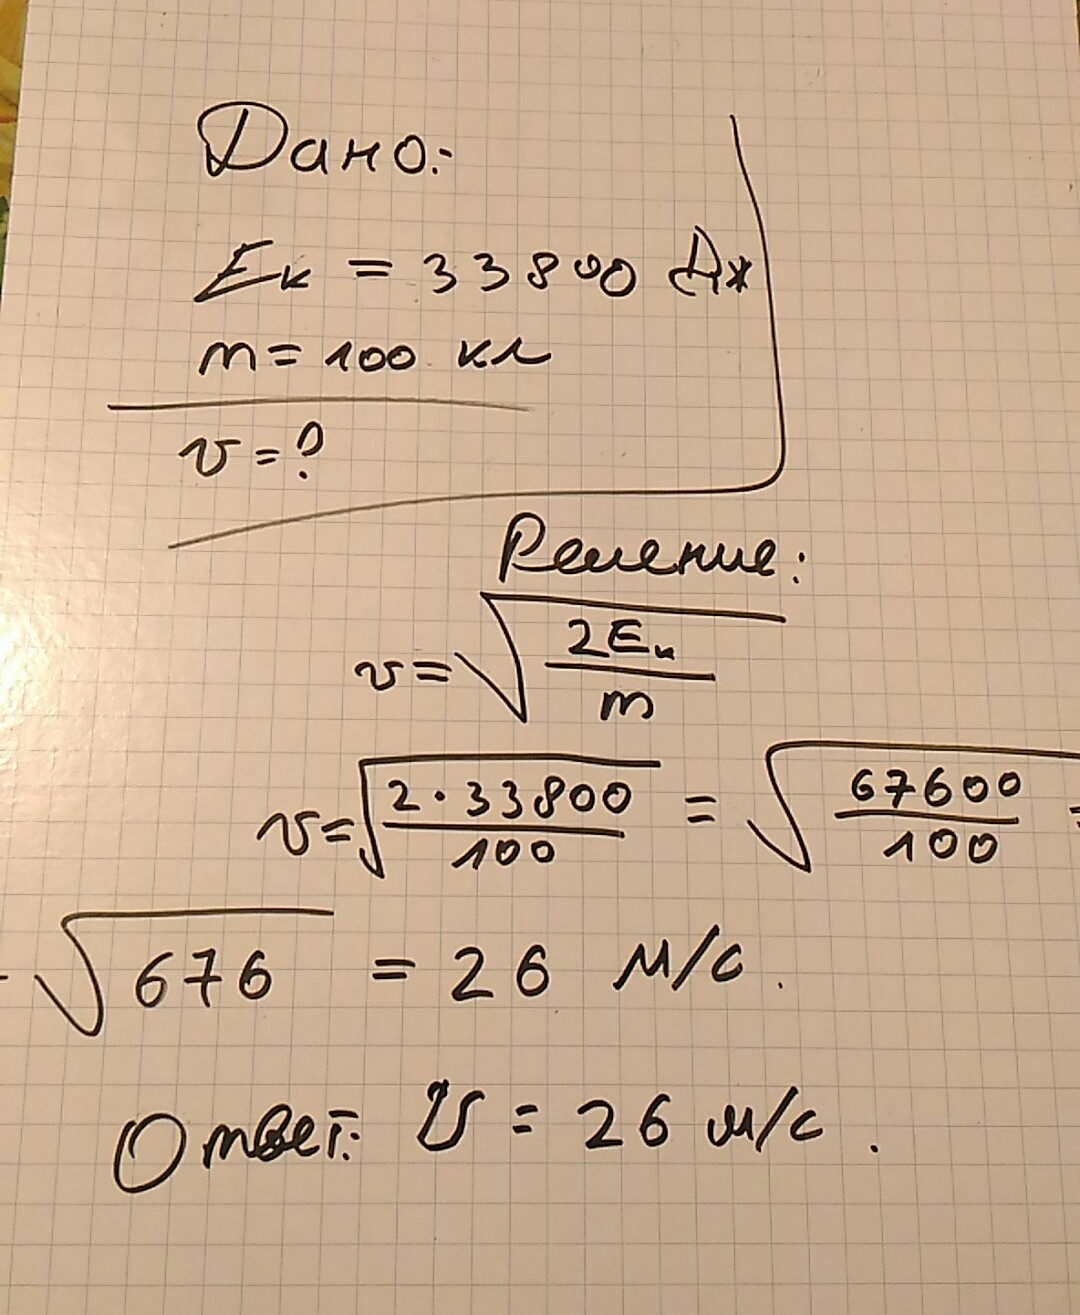 Дано:
Eк = 33800 Дж
m = 100 кг
v = ?
Решение:
v = √(2Eк / m)
v = √(2 · 33800 / 100) = √(67600 / 100) =
- √676 = 26 м/с.
Ответ: V = 26 м/с.